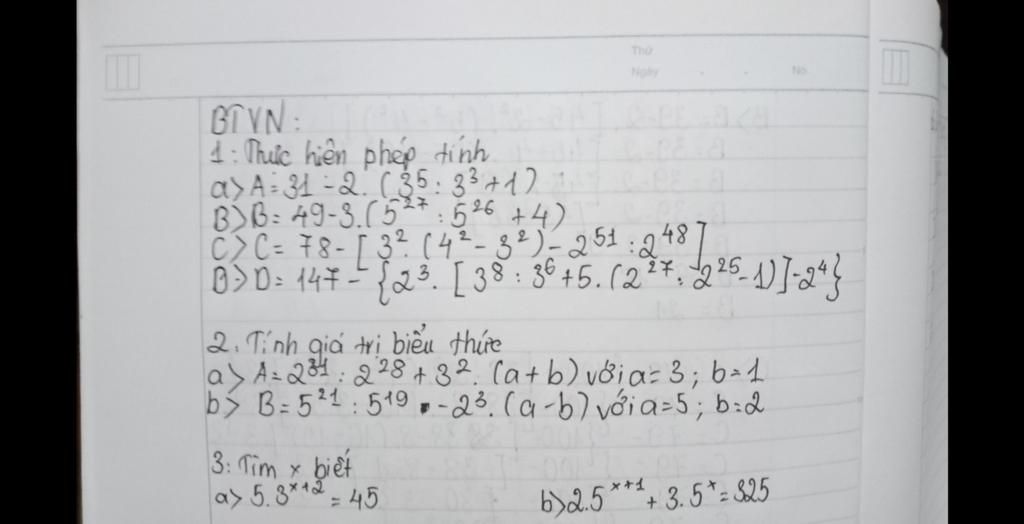 Thứ
Ngày No.
BTVN:
1: Thực hiên phép tính
a> A = 31 - 2. (3⁵ : 3³ + 1)
B> B = 49 - 3. (5²⁷ : 5²⁶ + 4)
C> C = 78 - [3². (4² - 3²) - 2⁵¹ : 2⁴⁸]
D> D = 147 - {2³. [3⁸ : 3⁶ + 5. (2²⁷ : 2²⁵ - 1)] - 2⁴}
2. Tính giá trị biểu thức
a> A = 2³¹ : 2²⁸ + 3². (a + b) với a = 3 ; b = 1
b> B = 5²¹ : 5¹⁹ - 2³. (a - b) với a = 5 ; b = 2
3: Tìm x biết
a> 5.3ˣ⁺² = 45 b> 2.5ˣ⁺¹ + 3.5ˣ = 325